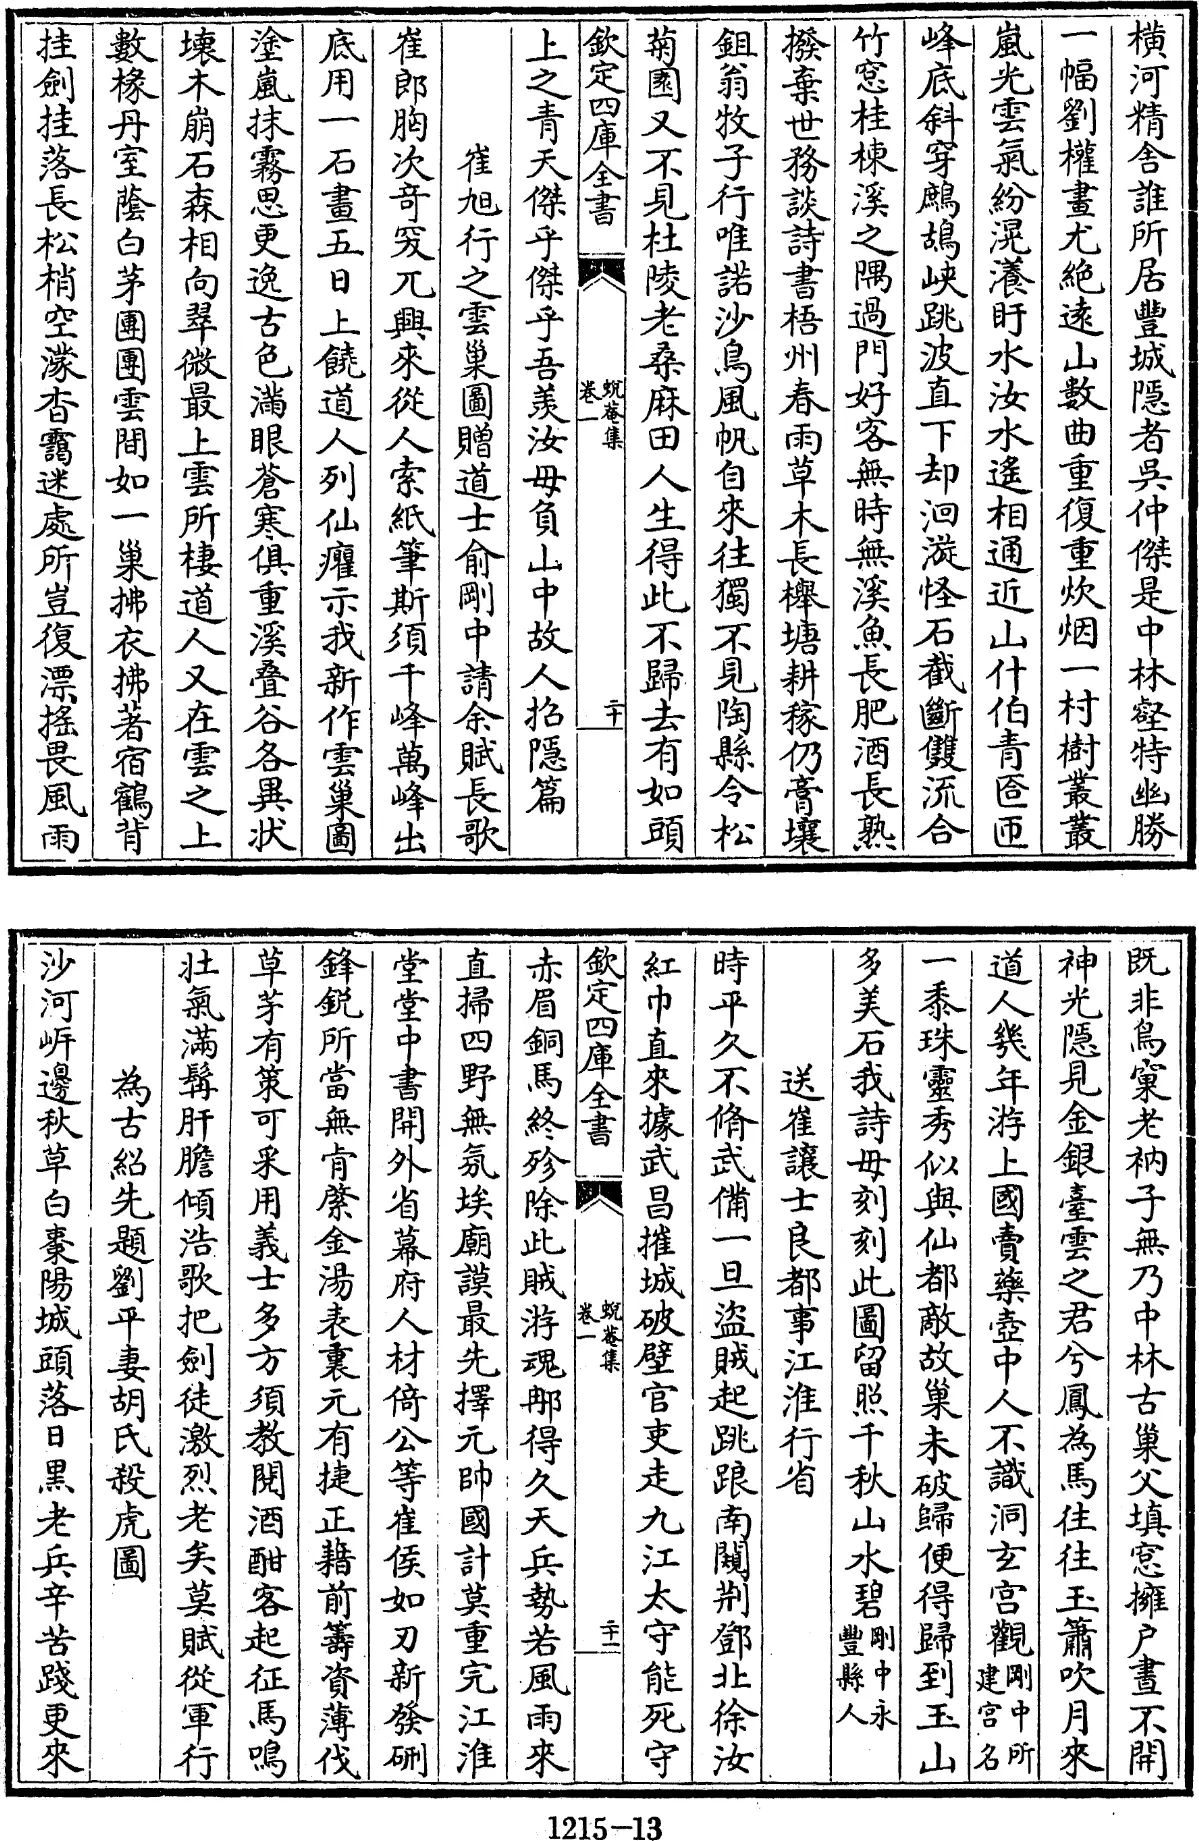 橫河精舍誰所居豐城隱者吳仲傑是中林壑特幽勝
一幅劉權畫尤絶遠山數曲重復重炊烟一村樹叢叢
嵐光雲氣紛滉瀁盱水汝水遙相通近山什伯青匼匝
峰底斜穿鷓鴣峽跳波直下却洄漩怪石截斷雙流合
竹窓桂棟溪之隅過門好客無時無溪魚長肥酒長熟
撥棄世務談詩書梧州春雨草木長櫸塘耕稼仍膏壤
鉏翁牧子行唯諾沙鳥風帆自來往獨不見陶縣令松
菊園又不見杜陵老桑麻田人生得此不歸去有如頭
欽定四庫全書
蛻菴集
卷一
二十
上之青天傑乎傑乎吾羨汝毋負山中故人招隱篇
崔旭行之雲巢圖贈道士俞剛中請余賦長歌
崔郎胸次奇突兀興來從人索紙筆斯須千峰萬峰出
底用一石畫五日上饒道人列仙癯示我新作雲巢圖
塗嵐抹霧思更逸古色滿眼蒼寒俱重溪叠谷各異狀
壞木崩石森相向翠微最上雲所棲道人又在雲之上
數椽丹室蔭白茅團團雲間如一巢拂衣拂著宿鶴背
挂劍挂落長松梢空濛杳靄迷處所豈復漂搖畏風雨
既非鳥窠老衲子無乃中林古巢父填窓擁户晝不開
神光隱見金銀臺雲之君兮鳳為馬往往玉簫吹月來
道人幾年游上國賣藥壺中人不識洞玄宫觀剛中所建宫名
一黍珠靈秀似與仙都敵故巢未破歸便得歸到玉山
多美石我詩毋刻刻此圖留照千秋山水碧剛中永豐縣人
送崔讓士良都事江淮行省
時平久不脩武備一旦盜賊起跳踉南闚荆鄧北徐汝
紅巾直來據武昌摧城破壁官吏走九江太守能死守
欽定四庫全書
蛻菴集
卷一
二十一
赤眉銅馬終殄除此賊游魂那得久天兵勢若風雨來
直掃四野無氛埃廟謨最先擇元帥國計莫重完江淮
堂堂中書開外省幕府人材倚公等崔侯如刃新發硎
鋒銳所當無肯綮金湯表裏元有捷正藉前籌資薄伐
草茅有策可采用義士多方須教閱酒酣客起征馬鳴
壯氣滿髯肝膽傾浩歌把劍徒激烈老矣莫賦從軍行
為古紹先題劉平妻胡氏殺虎圖
沙河岍邊秋草白棗陽城頭落日黑老兵辛苦踐更來
1215-13